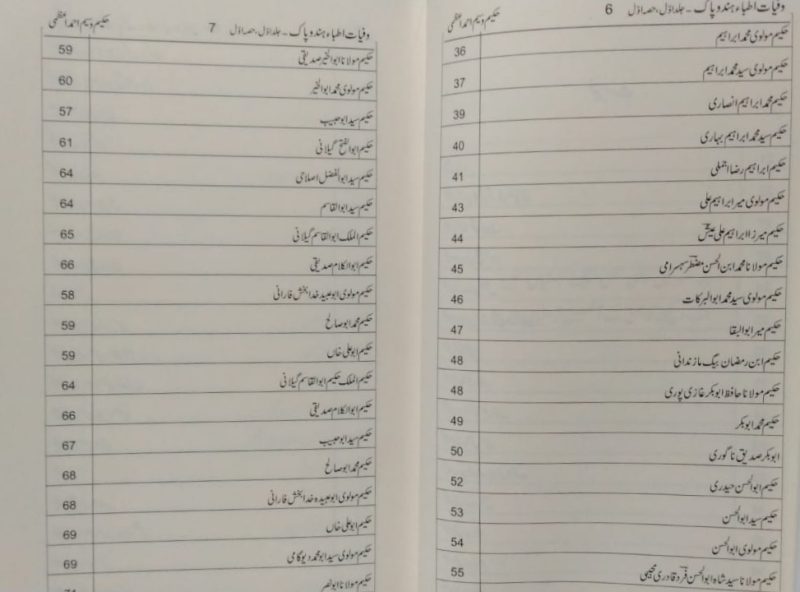 وفیات اطباء ہند و پاک ۔ جلد اوّل، حصہ اوّل 6 حکیم وسیم احمد اعظمی
حکیم مولوی محمد ابراہیم 36
حکیم مولوی سید محمد ابراہیم 37
حکیم محمد ابراہیم انصاری 39
حکیم سید محمد ابراہیم بہاری 40
حکیم ابراہیم رضا اجملی 41
حکیم مولوی میر ابراہیم علی 43
حکیم میرزا ابراہیم علی عیش 44
حکیم مولانا محمد ابن الحسن مضطر سہسرامی 45
حکیم مولوی سید محمد ابوالبرکات 46
حکیم میر ابوالبقا 47
حکیم ابن رمضان بیگ مازندانی 48
حکیم مولانا حافظ ابوبکر غازی پوری 48
حکیم محمد ابوبکر 49
ابوبکر صدیق ناگوری 50
حکیم ابوالحسن حیدری 52
حکیم سید ابوالحسن 53
حکیم مولوی ابوالحسن 54
حکیم مولانا سید شاہ ابوالحسن فرد قادری مجیبی 55
وفیات اطباء ہند و پاک ۔ جلد اوّل، حصہ اوّل 7 حکیم وسیم احمد اعظمی
حکیم مولانا ابوالخیر صدیقی 59
حکیم مولوی محمد ابوالخیر 60
حکیم سید ابو حبیب 57
حکیم ابوالفتح گیلانی 61
حکیم سید ابوالفضل اصلاحی 64
حکیم سید ابوالقاسم 64
حکیم الملک ابوالقاسم گیلانی 65
حکیم ابوالکلام صدیقی 66
حکیم مولوی ابو عبید خدا بخش فارانی 58
حکیم محمد ابو صالح 59
حکیم ابو علی خاں 59
حکیم الملک حکیم ابوالقاسم گیلانی 64
حکیم ابوالکلام صدیقی 66
حکیم سید ابو حبیب 67
حکیم محمد ابو صالح 68
حکیم مولوی ابو عبیدہ خدا بخش فارانی 68
حکیم ابو علی خاں 69
حکیم مولوی سید ابو محمد دیوگامی 69
حکیم مولانا ابو نصر 71